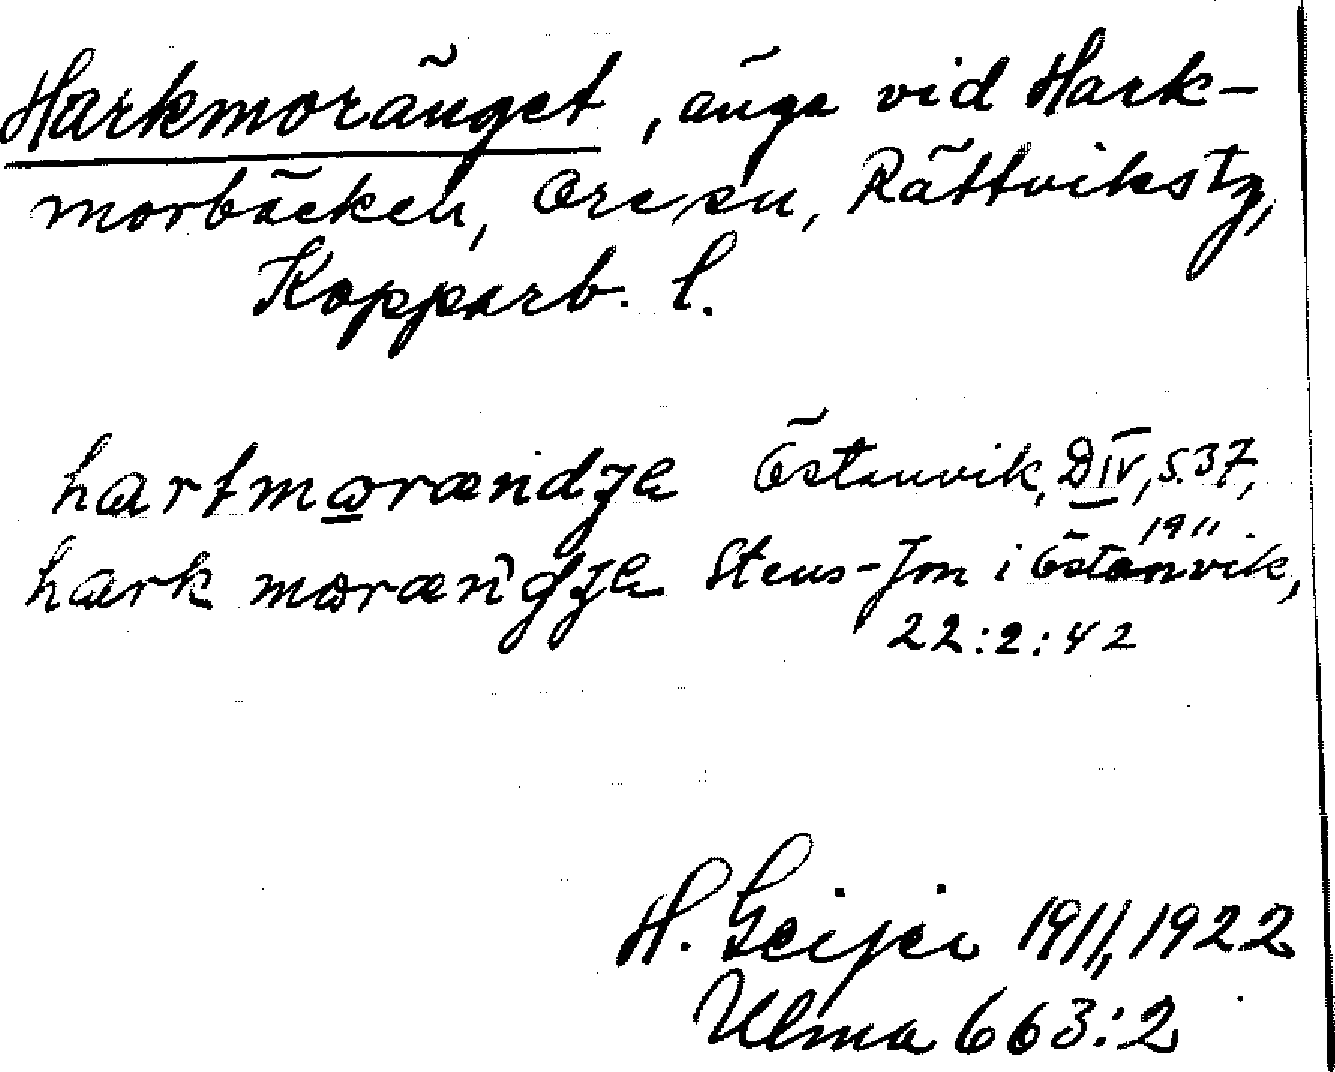 Harkmoränget, änge vid Hark-
morbäcken, Ore sn, Rättvikstg,
Kopparb. l.
hartmorændȝe Östanvik, D IV, s. 37,
1911
hark morændȝe Stens-Jon i Östanvik,
22:2:42
H. Geijer 1911, 1922
Ulma 663:2